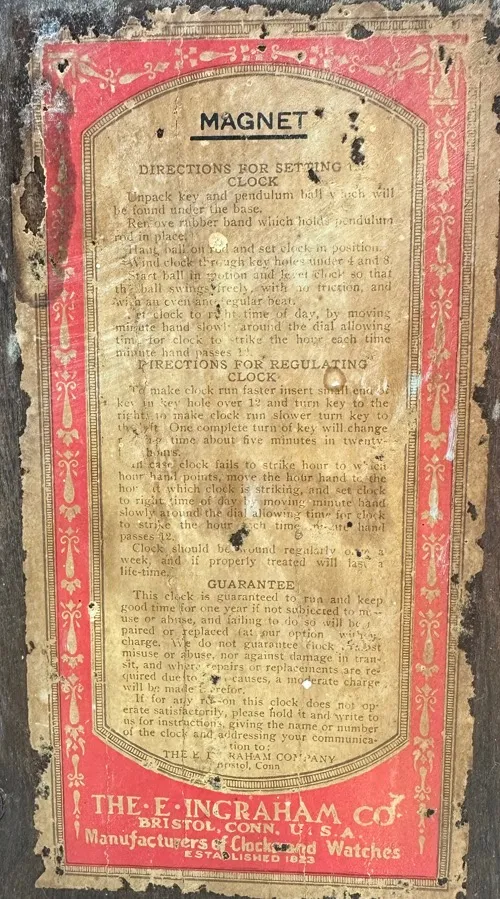 MAGNET
DIRECTIONS FOR SETTING
CLOCK
Unpack key and pendulum ball which will
be found under the base.
Remove rubber band which holds pendulum
rod in place.
Hang ball on rod and set clock in position.
Wind clock through key holes under 4 and 8.
Start ball in motion and level clock so that
the ball swings freely, with no friction, and
with an even and regular beat.
Set clock to right time of day, by moving
minute hand slowly around the dial allowing
time for clock to strike the hour each time
minute hand passes 12.
DIRECTIONS FOR REGULATING
CLOCK
To make clock run faster insert small end of
key in key hole over 12 and turn key to the
right; to make clock run slower turn key to
the left. One complete turn of key will change
time about five minutes in twenty-
hours.
In case clock fails to strike hour to which
hour hand points, move the hour hand to the
hour at which clock is striking, and set clock
to right time of day by moving minute hand
slowly around the dial allowing time for clock
to strike the hour each time minute hand
passes 12.
Clock should be wound regularly once a
week, and if properly treated will last a
life-time.
GUARANTEE
This clock is guaranteed to run and keep
good time for one year if not subjected to mis-
use or abuse, and failing to do so will be re-
paired or replaced (at our option) without
charge. We do not guarantee clock against
misuse or abuse, nor against damage in tran-
sit, and where repairs or replacements are re-
quired due to causes, a moderate charge
will be made therefor.
If for any reason this clock does not op-
erate satisfactorily, please hold it and write to
us for instructions, giving the name or number
of the clock and addressing your communica-
tion to:
THE E. INGRAHAM COMPANY
Bristol, Conn
THE·E·INGRAHAM CO.
BRISTOL, CONN. U. S. A.
Manufacturers of Clocks and Watches
ESTABLISHED 1823